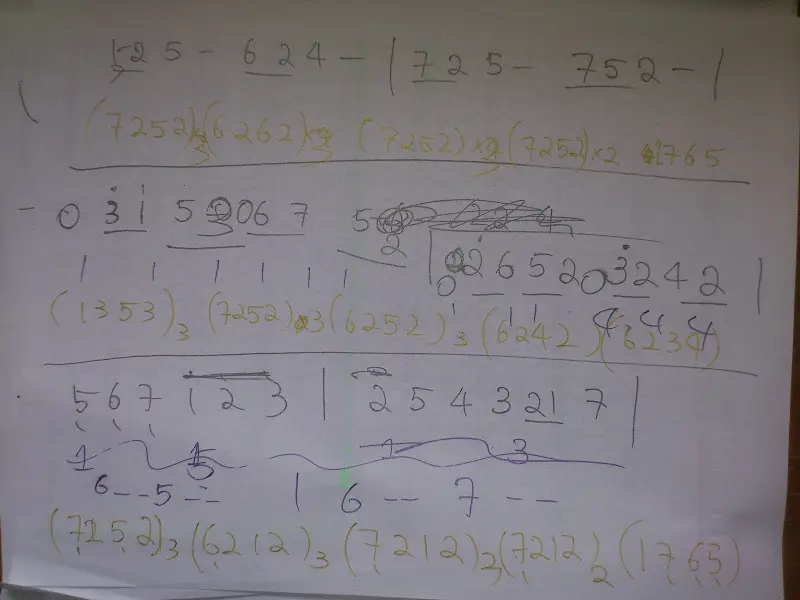 125 - 624 - | 725 - 752 - |
(7252)x3 (6262)x3 (7252)x3 (7252)x2 1765
- 0 31 5 3067 5
2
0265203242 |
(1353)3 (7252)3 (6252)3 (6242) (6234)
567 123 | 2543217 |
1 5 1 3
6--5-- | 6 -- 7 --
(7252)3 (6212)3 (7212)2 (7212)2 (1765)